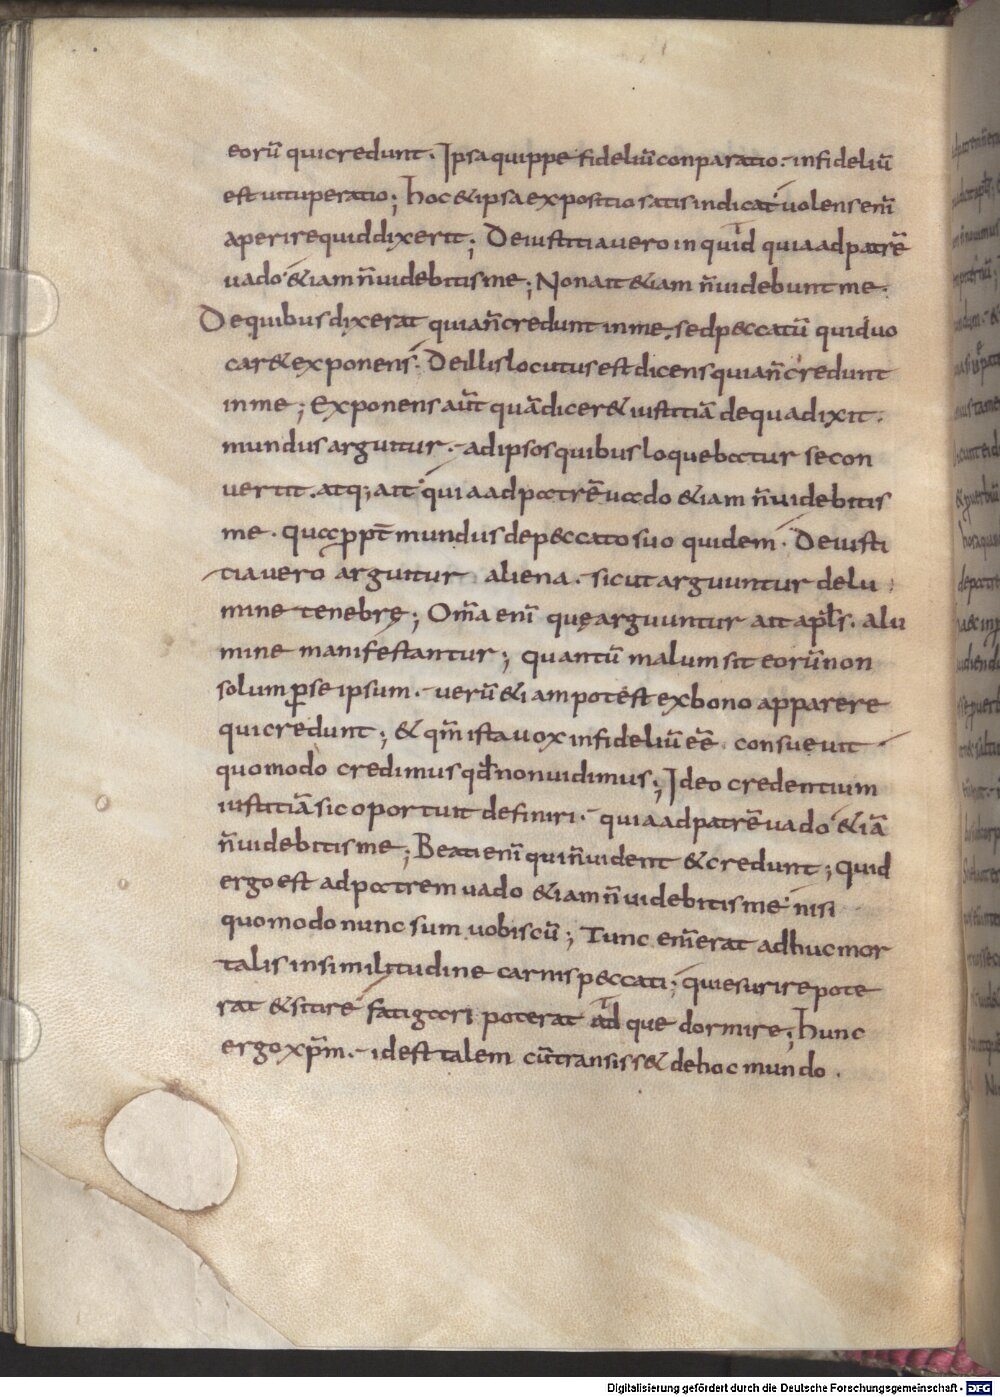 eorū qui credunt. Ipsa quippe fideliū conparatio. infideliū
est uituperatio; hoc & ipsa expositio satis indicat uolens enī
aperire quid dixerit; De iustitia uero inquid quia ad patrē
uado & iam n̄ uidebitis me; Non ait & iam n̄ uidebunt me.
De quibus dixerat quia n̄ credunt in me. sed peccatū quid uo
car& exponens. De illis locutus est dicens quia n̄ credunt
in me; Exponens aūt quā dicer& iustitiā de qua dixit.
mundus arguitur. ad ipsos quibus loquebatur se con
uertit. atq; ait quia ad patrē uado & iam n̄ uidebitis
me. qua ꝓpt̄ mundus de peccato suo quidem. De iusti
tia uero arguitur aliena. sicut arguuntur de lu
mine tenebrę; Om̄a enī quę arguuntur ait apl̄s. a lu
mine manifestantur; quantū malum sit eorū non
solum ꝑ se ipsum. uerū &iam potest ex bono apparere
qui credunt; & qm̄ ista uox infideliū eē consueuit
quomodo credimus qd̄ non uidimus; Ideo credentium
iustitiā sic oportuit definiri. quia ad patrē uado & iā
n̄ uidebitis me; Beati enī qui n̄ uident & credunt; quid
ergo est ad patrem uado & iam n̄ uidebitis me nisi
quomodo nunc sum uobiscū; Tunc enī erat adhuc mor
talis in similitudine carnis peccati; qui esurire pote
rat & sitire fatigari poterat atque dormire; hunc
ergo xp̄m. id est talem cū transiss& de hoc mundo.
Digitalisierung gefördert durch die Deutsche Forschungsgemeinschaft - DFG